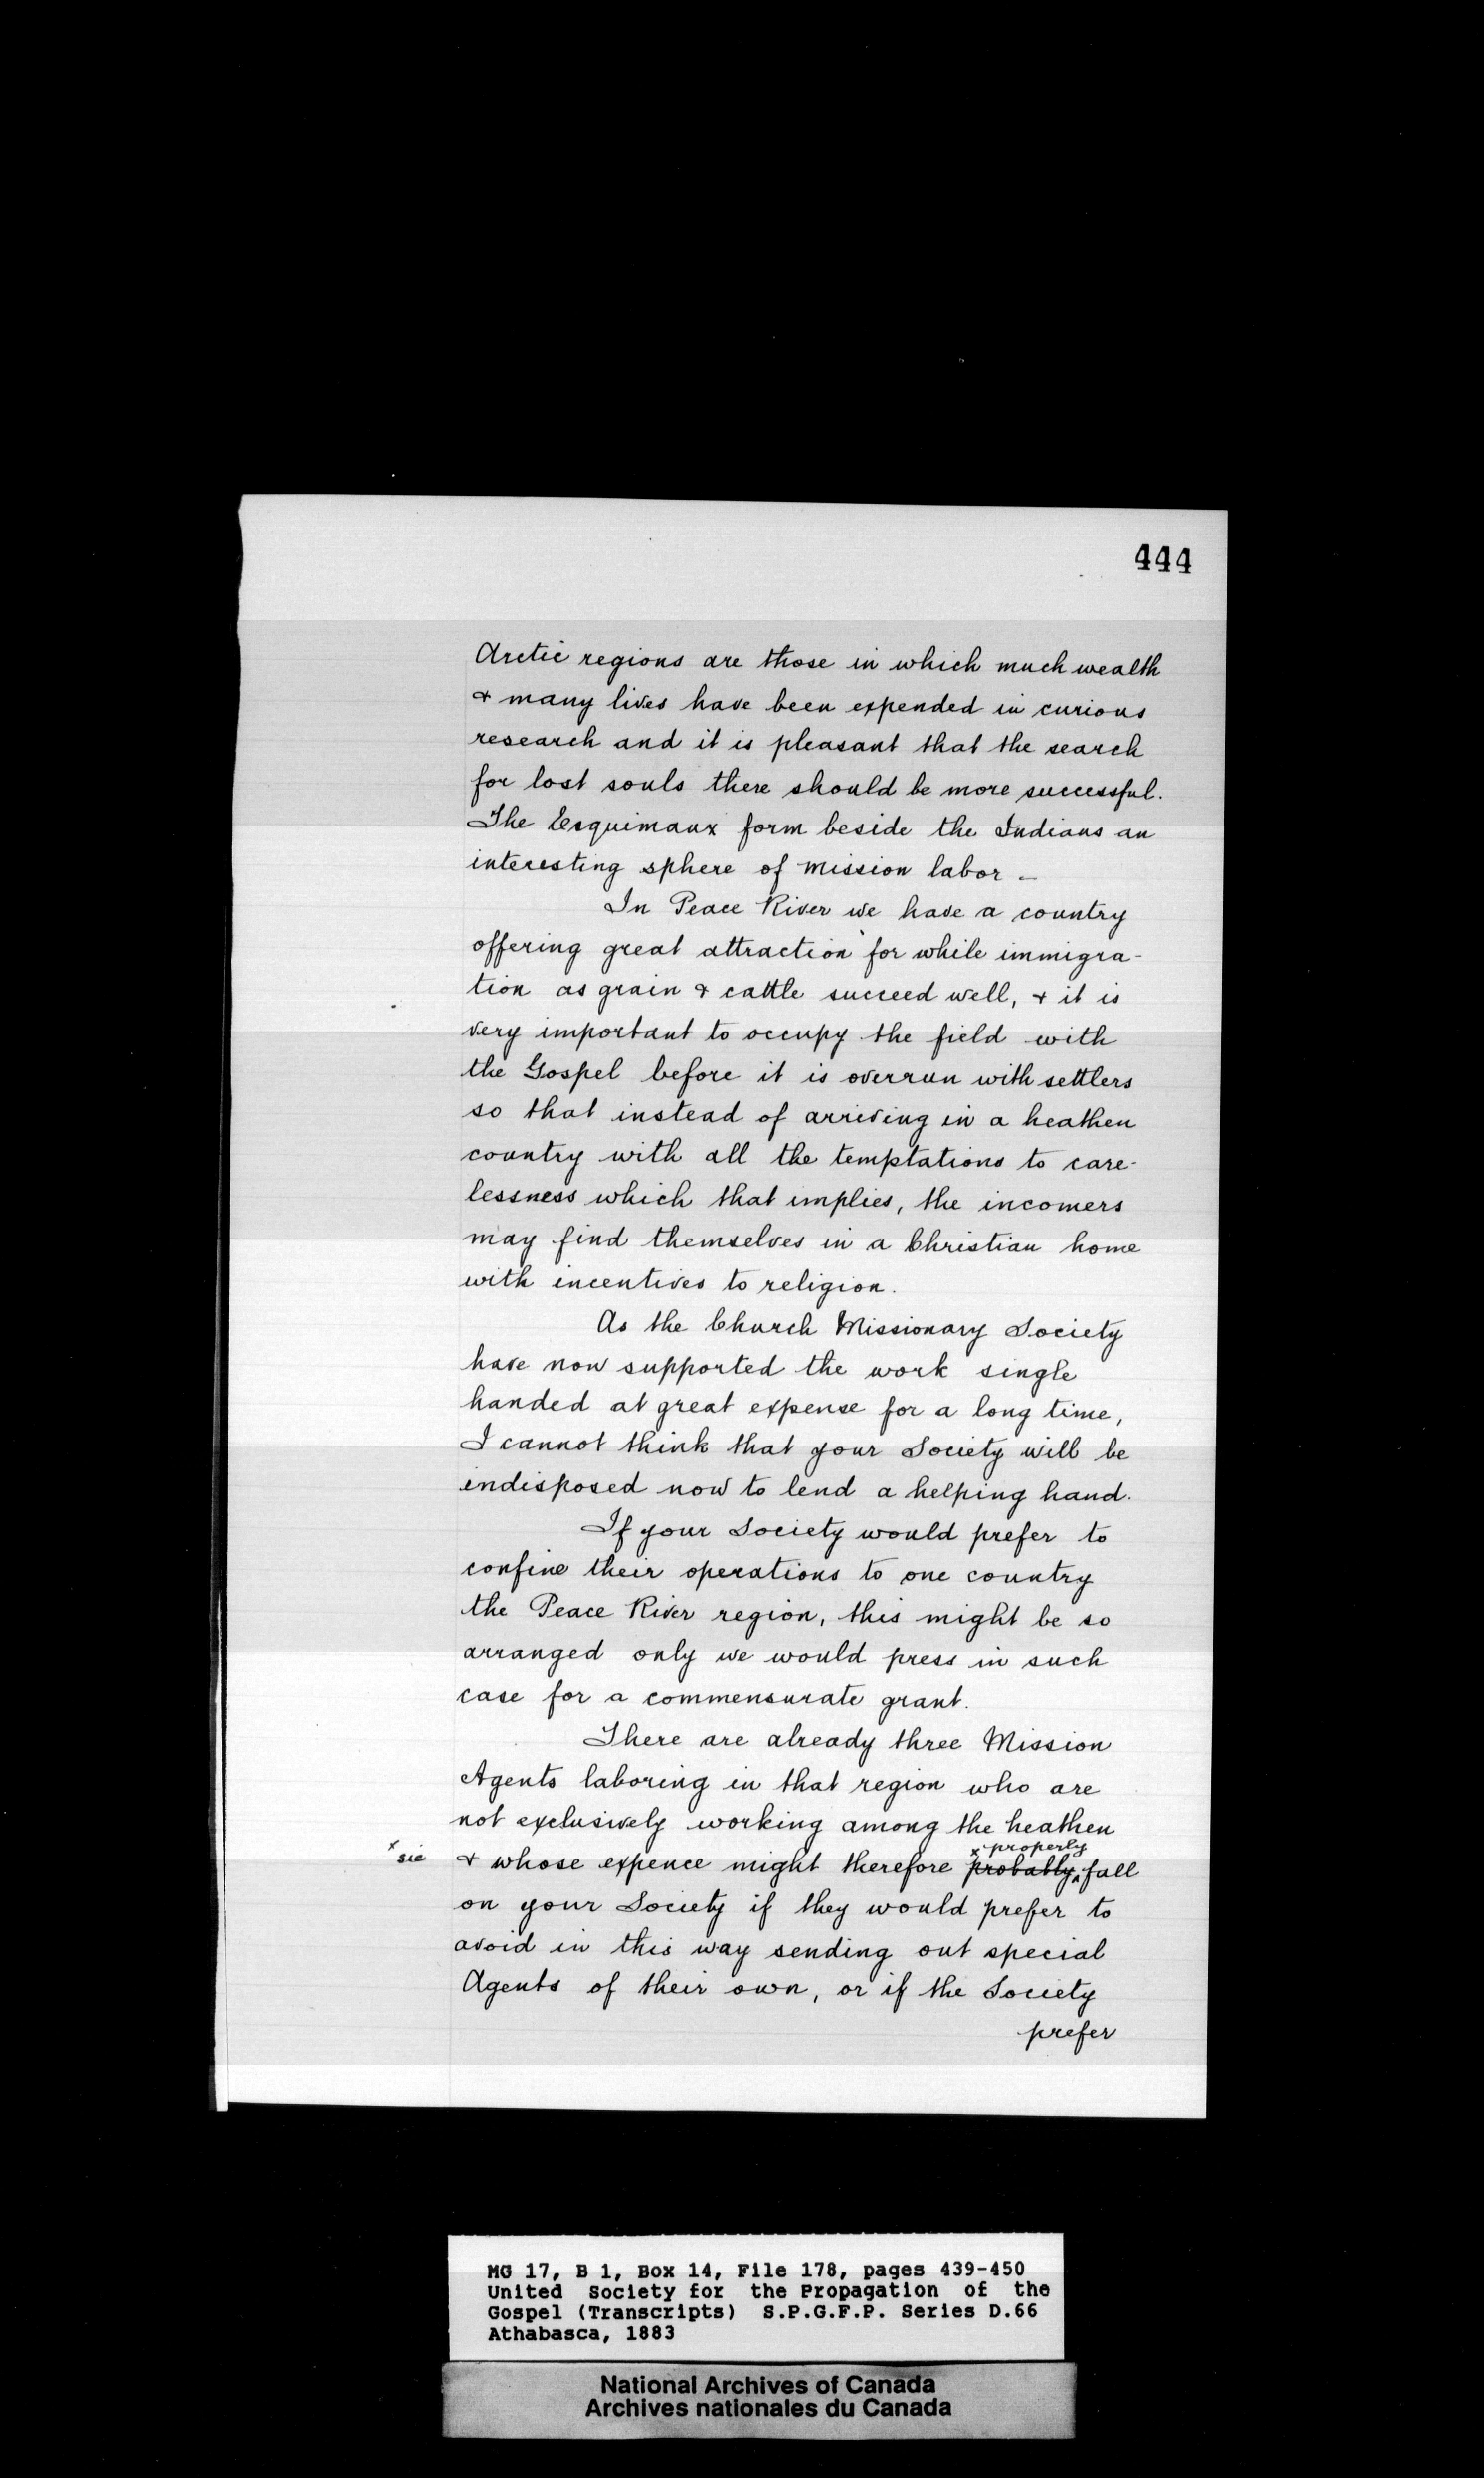 444
Arctic regions are those in which much wealth
& many lives have been expended in curious
research and it is pleasant that the search
for lost souls there should be more successful.
The Esquimaux form beside the Indians an
interesting sphere of mission labor –
In Peace River we have a country
offering great attraction for while immigra-
tion as grain & cattle succeed well, & it is
very important to occupy the field with
the Gospel before it is overrun with settlers
so that instead of arriving in a heathen
country with all the temptations to care-
lessness which that implies, the incomers
may find themselves in a Christian home
with incentives to religion.
As the Church Missionary Society
have now supported the work single
handed at great expense for a long time,
I cannot think that your Society will be
indisposed now to lend a helping hand.
If your Society would prefer to
confine their operations to one country
the Peace River region, this might be so
arranged only we would press in such
case for a commensurate grant.
There are already three Mission
Agents laboring in that region who are
not exclusively working among the heathen
x properly
x sic & whose expence might therefore probably fall
on your Society if they would prefer to
avoid in this way sending out special
Agents of their own, or if the Society
prefer
MG 17, B 1, Box 14, File 178, pages 439-450
United Society for the Propagation of the
Gospel (Transcripts) S.P.G.F.P. Series D.66
Athabasca, 1883
National Archives of Canada
Archives nationales du Canada